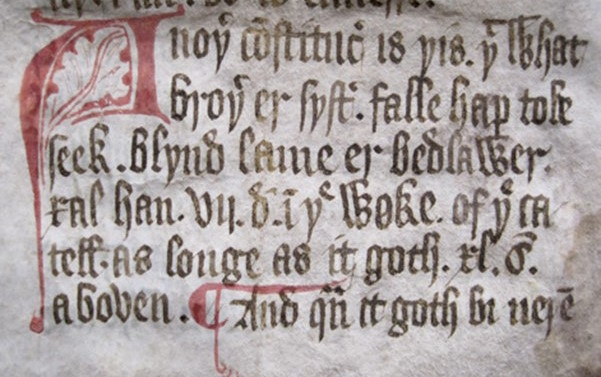 Anoy̅ co̅stituc̅ is yis. y̅ what
broy̅ er syst̅. falle hap̅ to be
seek. blynd lame er bedlawer.
xal han. vij. d̅. i̅ yͤ woke. of yͤ ca
tell. as longe as it goth. xl. s̅.
aboven. ¶ And qn̅ it goth